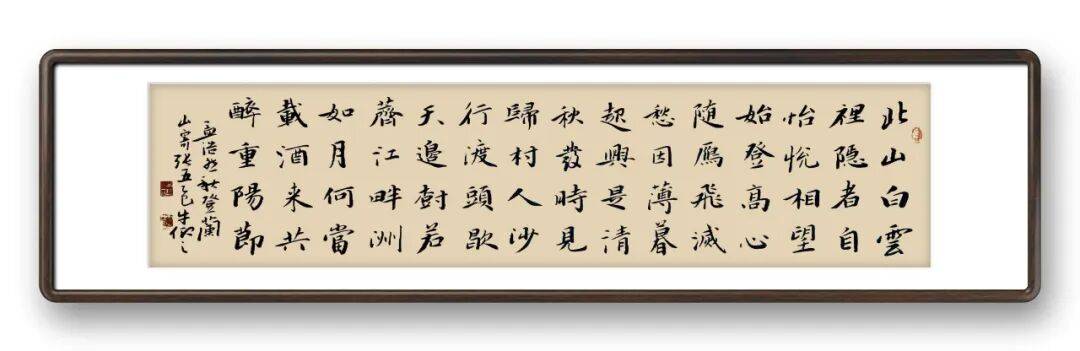 北山白雲
裡隱者自
怡悅相望
始登高心
随鴈飛滅
愁因薄暮
起興是清
秋發時見
歸村人沙
行渡頭歇
天邊樹若
薺江畔洲
如月何當
載酒来共
醉重陽節
孟浩然秋登蘭
山寄張五乙巳牛